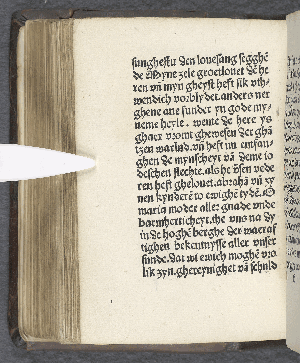 sunghestu den lovesang segghē
de Myne zele groetlovet dē he
ren vñ myn gheyst heft sik vth⸗
wendich vorblydet. anders ner
ghene ane sunder yn gode my⸗
neme heyle. wente de here ys
ghaer vromt ghewesen der ghā
tzen warlid. vñ heft nu entfan⸗
ghen de mynscheyt vā deme io
deschen slechte. als he vsen vede
ren heft ghelovet. abrahā vñ zy
nen kynderē to ewighē tydē. O
maria moder aller gnade vnde
barmherticheyt. the vns na dy
in de hoghē berghe der waeraf
tighen bekentnysse aller vnser
sunde. dat wi ewich moghē vro
lik zyn. ghereynighet vā schuld